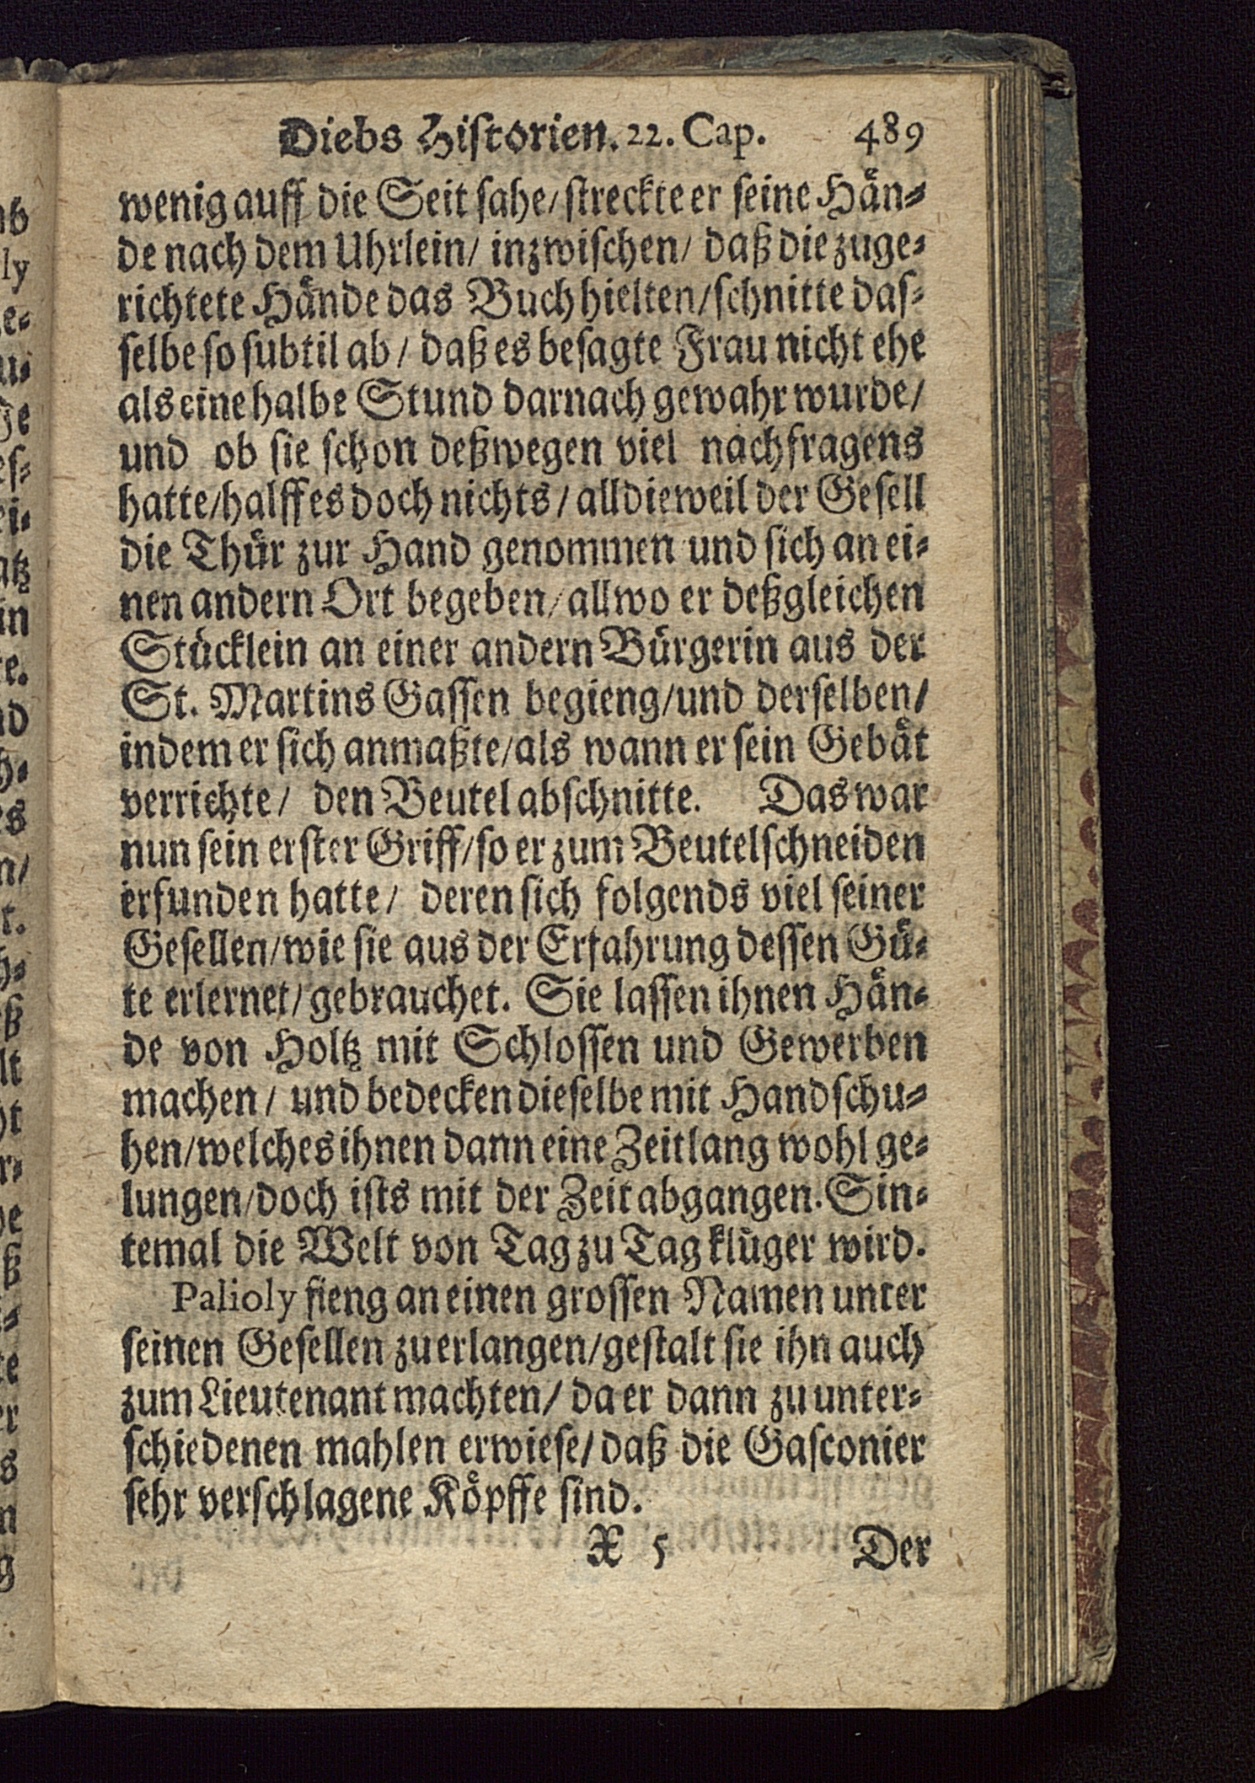 Diebs Historien. 22. Cap. 489
wenig auff die Seit sahe/ streckte er seine Hän-
de nach dem Uhrlein/ inzwischen/ daß die zuge-
richtete Hände das Buch hielten/ schnitte das-
selbe so subtil ab/ daß es besagte Frau nicht ehe
als eine halbe Stund darnach gewahr wurde/
und ob sie schon deßwegen viel nachfragens
hatte/ halff es doch nichts/ alldieweil der Gesell
die Thür zur Hand genommen und sich an ei-
nen andern Ort begeben/ allwo er deßgleichen
Stücklein an einer andern Bürgerin aus der
St. Martins Gassen begieng/ und derselben/
indem er sich anmaßte/ als wann er sein Gebät
verrichte/ den Beutel abschnitte. Das war
nun sein erster Griff/ so er zum Beutelschneiden
erfunden hatte/ deren sich folgends viel seiner
Gesellen/ wie sie aus der Erfahrung dessen Gü-
te erlernet/ gebrauchet. Sie lassen ihnen Hän-
de von Holtz mit Schlossen und Gewerben
machen/ und bedecken dieselbe mit Handschu-
hen/ welches ihnen dann eine Zeitlang wohl ge-
lungen/ doch ists mit der Zeit abgangen. Sin-
temal die Welt von Tag zu Tag klüger wird.
Palioly fieng an einen grossen Namen unter
seinen Gesellen zu erlangen/ gestalt sie ihn auch
zum Lieutenant machten/ da er dann zu unter-
schiedenen mahlen erwiese/ daß die Gasconier
sehr verschlagene Köpffe sind.
X 5 Der